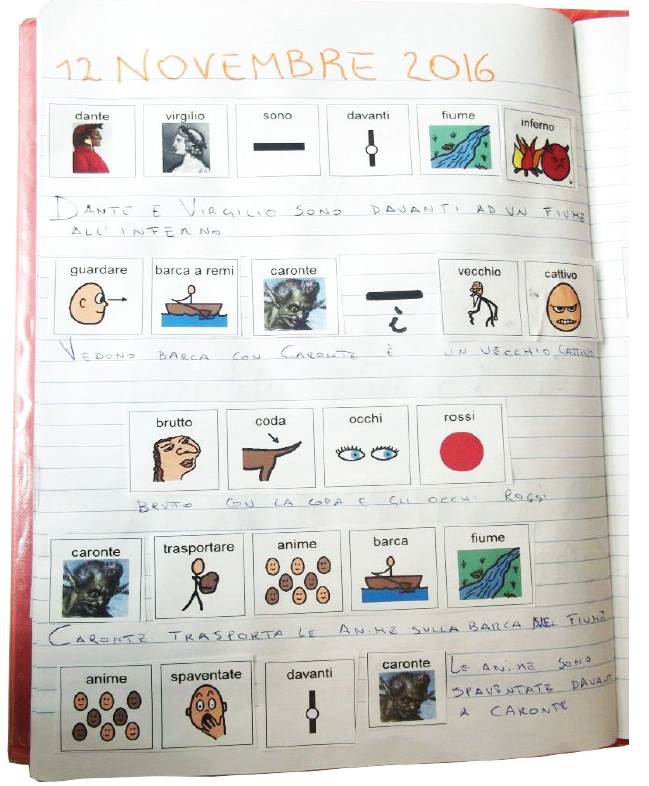 12 NOVEMBRE 2016
dante virgilio sono davanti fiume inferno
DANTE E VIRGILIO SONO DAVANTI AD UN FIUME
ALL'INFERNO
guardare barca a remi caronte è vecchio cattivo
VEDONO BARCA CON CARONTE È UN VECCHIO, CATTIVO
brutto coda occhi rossi
BRUTO CON LA CODA E GLI OCCHI ROSSI
caronte trasportare anime barca fiume
CARONTE TRASPORTA LE ANIME SULLA BARCA NEL FIUME
anime spaventate davanti caronte
LE ANIME SONO
SPAVENTATE DAVANTI
A CARONTE